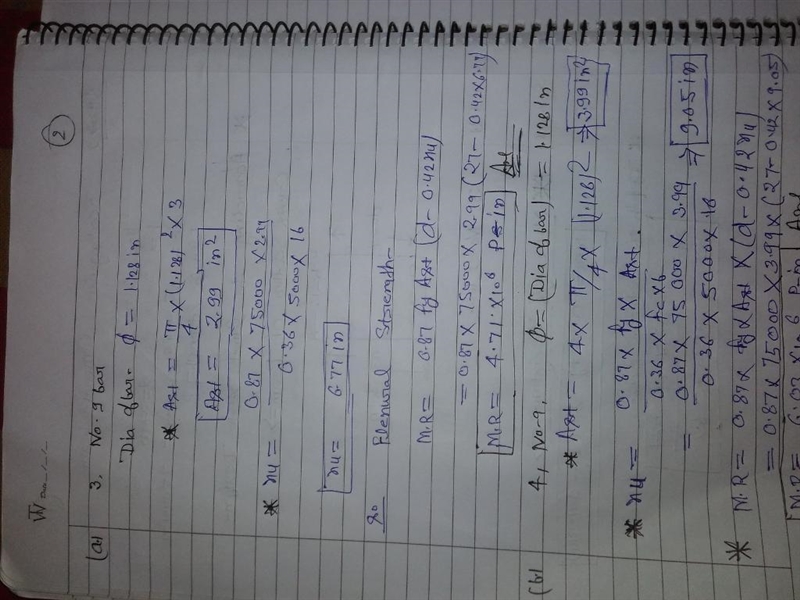 2
(a) 3, No. 9 bar
Dia of bar. ϕ = 1.128 in
* Ast = π/4 × (1.128)² × 3
Ast = 2.99 in²
* xu = 0.87 × 75000 × 2.99 / 0.36 × 5000 × 16
xu = 6.77 in
so Flexural Strength-
M.R = 0.87 fy Ast (d - 0.42 xu)
= 0.87 × 75000 × 2.99 (27 - 0.42 × 6.77)
M.R = 4.71 × 10⁶ P-in Ans
(b) 4, No-9, ϕ = (Dia of bar) = 1.128 in
* Ast = 4 × π/4 × (1.128)² ⇒ 3.99 in²
* xu = 0.87 × fy × Ast. / 0.36 × fc × b
= 0.87 × 75000 × 3.99 / 0.36 × 5000 × 16 ⇒ 9.05 in
* M.R = 0.87 × fy × Ast × (d - 0.42 xu)
= 0.87 × 75000 × 3.99 × (27 - 0.42 × 9.05)
M.R =